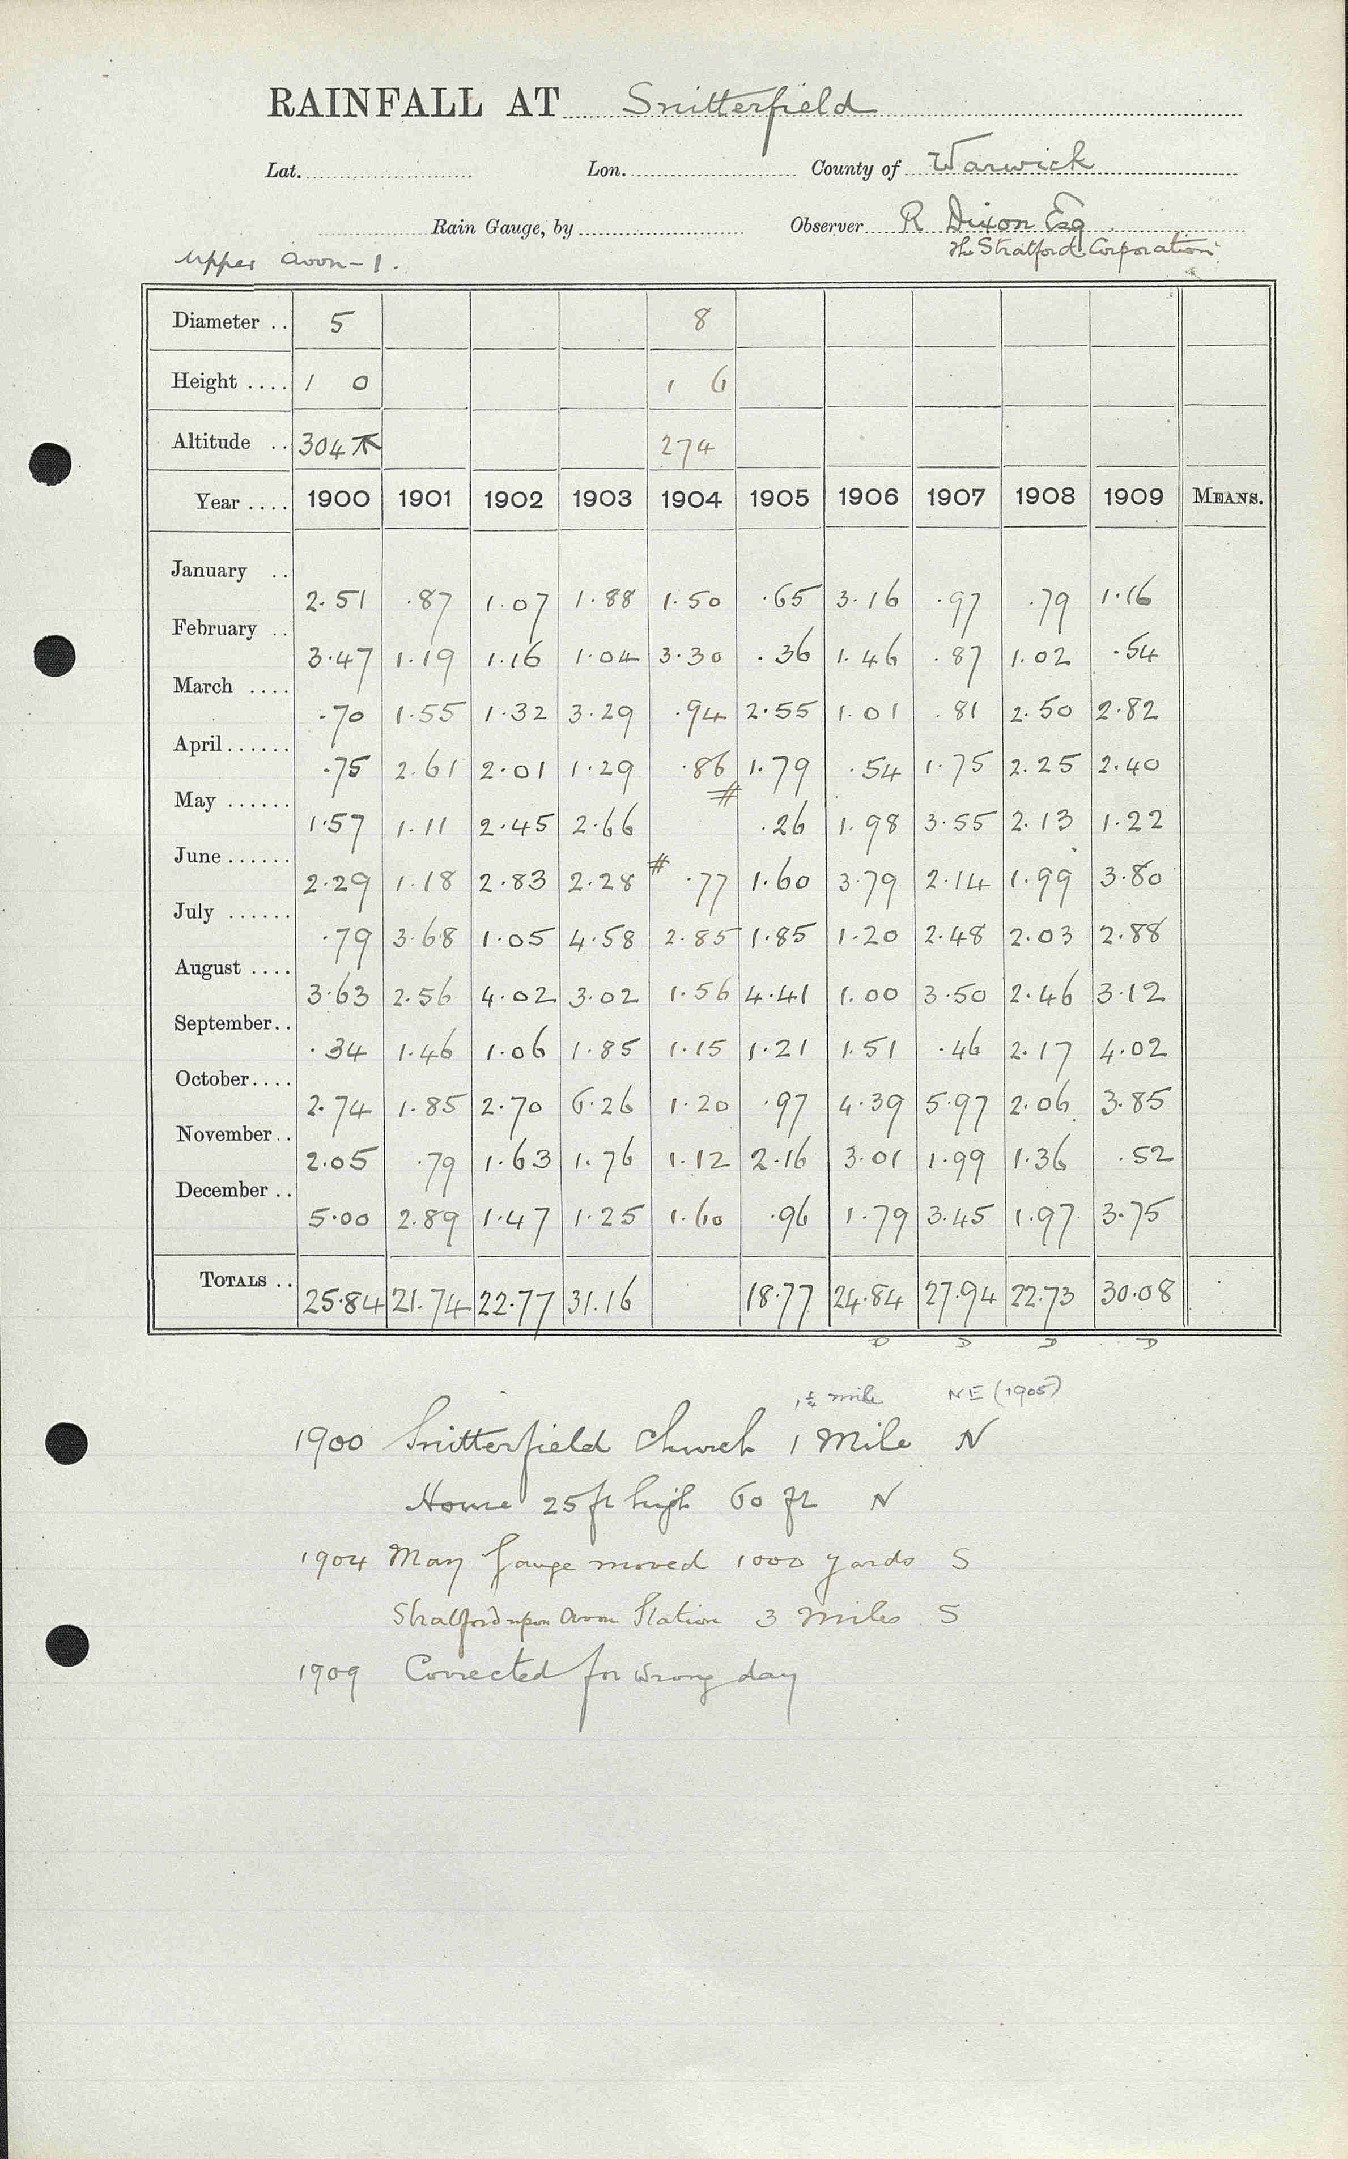 RAINFALL AT Snitterfield
Lat. Lon. County of Warwick
Rain Gauge, by Observer R Dixon Esq
The Stratford Corporation
Upper Avon - 1.
Diameter .. 5 8
Height .... 1 0 1 6
Altitude .. 304 274
Year .... 1900 1901 1902 1903 1904 1905 1906 1907 1908 1909 MEANS.
January .. 2.51 .87 1.07 1.88 1.50 .65 3.16 .97 .79 1.16
February .. 3.47 1.19 1.16 1.04 3.30 .36 1.46 .87 1.02 .54
March .... .70 1.55 1.32 3.29 .94 2.55 1.01 .81 2.50 2.82
April...... .75 2.61 2.01 1.29 .86 1.79 .54 1.75 2.25 2.40
May ...... 1.57 1.11 2.45 2.66 # .26 1.98 3.55 2.13 1.22
June...... 2.29 1.18 2.83 2.28 # .77 1.60 3.79 2.14 1.99 3.80
July ...... .79 3.68 1.05 4.58 2.85 1.85 1.20 2.48 2.03 2.88
August .... 3.63 2.56 4.02 3.02 1.56 4.41 1.00 3.50 2.46 3.12
September.. .34 1.46 1.06 1.85 1.15 1.21 1.51 .46 2.17 4.02
October.... 2.74 1.85 2.70 6.26 1.20 .97 4.39 5.97 2.06 3.85
November.. 2.05 .79 1.63 1.76 1.12 2.16 3.01 1.99 1.36 .52
December .. 5.00 2.89 1.47 1.25 1.60 .96 1.79 3.45 1.97 3.75
TOTALS .. 25.84 21.74 22.77 31.16 18.77 24.84 27.94 22.73 30.08
D D D D
mile NE (1905)
1900 Snitterfield Church 1 Mile N
House 25 ft high 60 ft N
1904 May Gauge moved 1000 yards S
Stratford upon Avon Station 3 miles S
1909 Corrected for wrong day